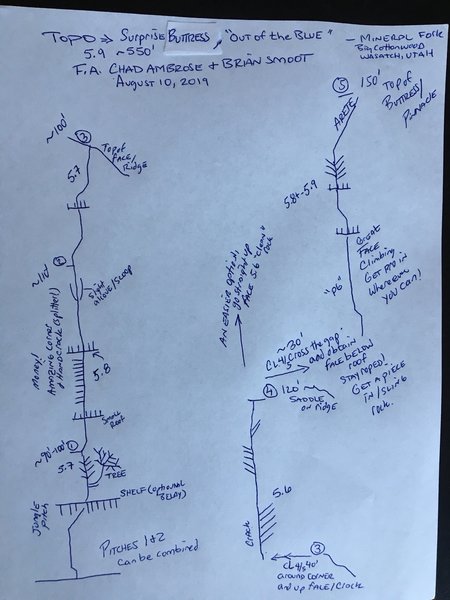 TOPO ⇒ Surprise BUTTRESS, "OUT of the BLUE"
5.9 ~550'
F.A. CHAD AMBROSE & BRIAN SMOOT
AUGUST 10, 2019
— MINERAL FORK
Big Cottonwood
WASATCH, UTAH
~100'
3
Top of
FACE/
Ridge
5.7
2
~110'
Slight
alcove/scoop
Money!
AMAZING CORNER
& Handcrack (splitter!)
5.8
Small
Roof
1
~90'-100'
5.7
TREE
SHELF (optional
BELAY)
Jungle
Pitch
PITCHES 1 & 2
can be combined
5
150'
TOP of
BUTTRESS/
PINNACLE
ARETE
5.8+-5.9
Great
FACE
Climbing
GET PRO IN
Wherever
you can!
"P6"
AN EASIER option,
go straight up
FACE 5.6 "clean"
rock
~30'
CL4/5 Cross the gap
and obtain
FACE below
roof
STAY ROPED!
Get a piece
in/sling
rock.
4
120'
SADDLE
on ridge
5.6
CRACK
3
CL 4/5 40'
around CORNER
and up FACE/CRACK